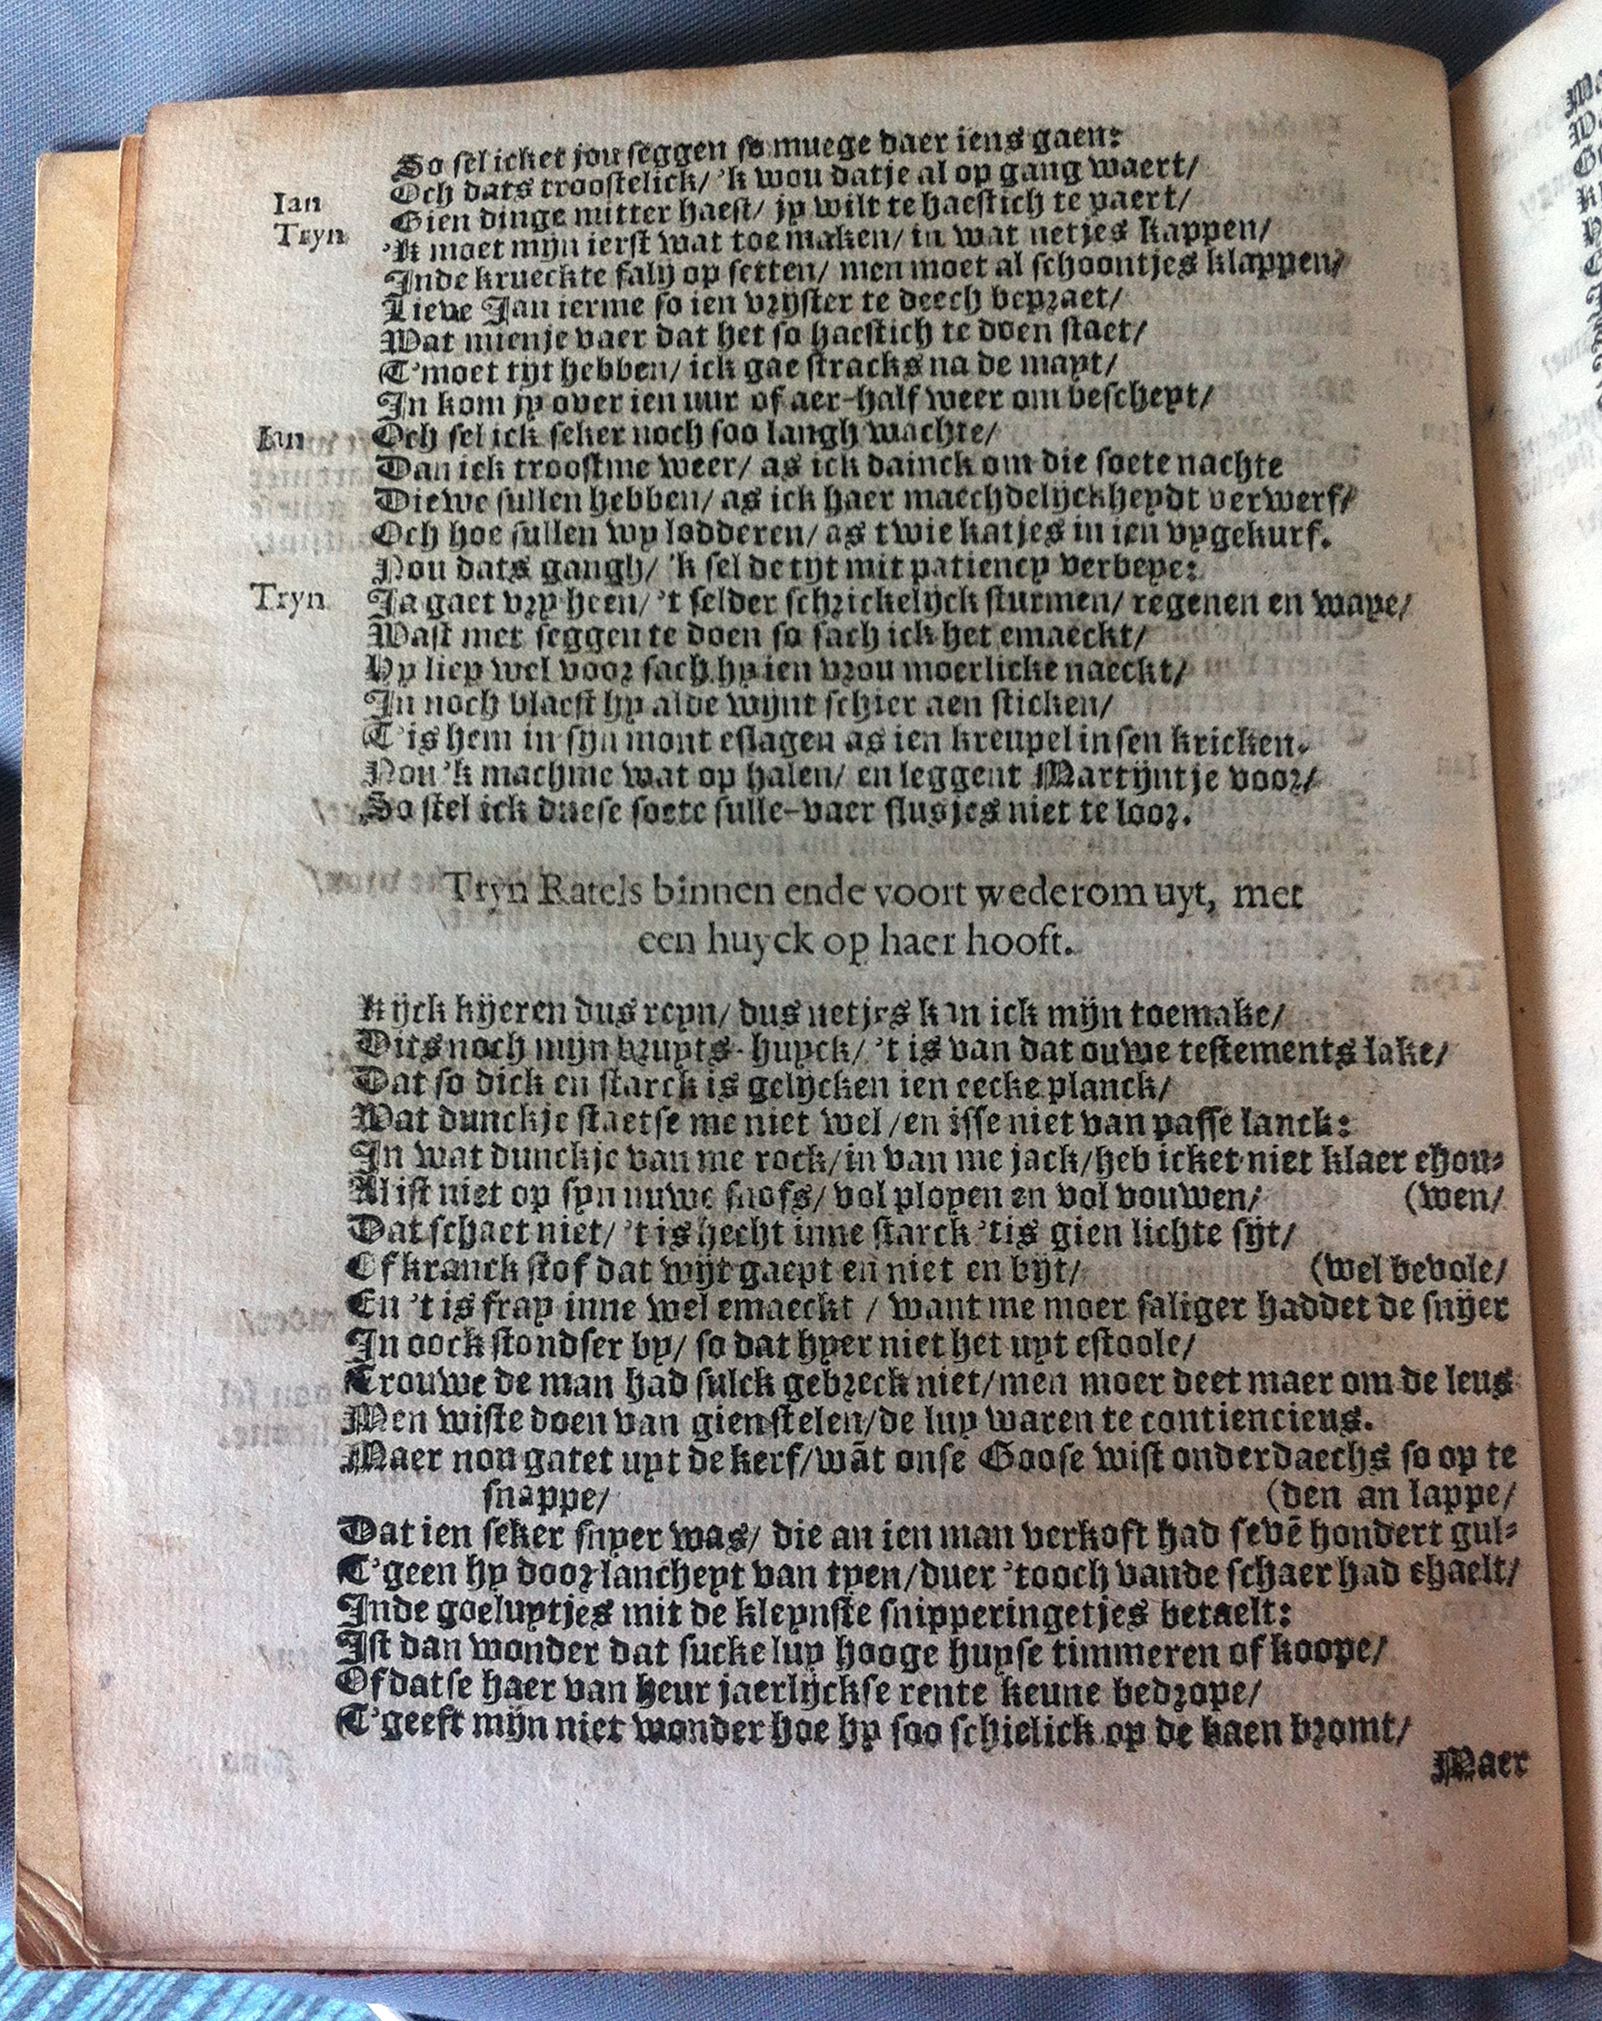 So sel icket jou seggen so muege daer iens gaen:
Ian Och dats troostelick/ 'k wou datje al op gang waert/
Tryn Gien dinge mitter haest/ jy wilt te haestich te paert/
'K moet mijn ierst wat toe maken/ in wat netjes kappen/
Inde krueckte falij op setten/ men moet al schoontjes klappen/
Lieve Jan ierme so ien vrijster te deech bepraet/
Wat mienje vaer dat het so haestich te doen staet/
T'moet tijt hebben/ ick gae stracks na de mayt/
In kom jy over ien uur of aer-half weer om bescheyt/
Ian Och sel ick seker noch soo langh wachte/
Dan ick troostme weer/ as ick dainck om die soete nachte
Diewe sullen hebben/ as ick haer maechdelijckheydt verwerf/
Och hoe sullen wy lodderen/ as twie katjes in ien vygekurf.
Nou dats gangh/ 'k sel de tijt mit patiency verbeye:
Tryn Ja gaet vry heen/ 't selder schrickelijck sturmen/ regenen en waye/
Wast met seggen te doen so sach ick het emaeckt/
Hy liep wel voor sach hy ien vrou moerlicke naeckt/
In noch blaest hy al de wijnt schier aen sticken/
T'is hem in syn mont eslagen as ien kreupel in sen kricken.
Nou 'k machme wat op halen/ en leggent Martijntje voor/
So stel ick duese soete sulle-vaer flusjes niet te loor.
Tryn Ratels binnen ende voort wederom uyt, met
een huyck op haer hooft.
Kijck kijeren dus reyn/ dus netjes kan ick mijn toemake/
Dits noch mijn bruyts-huyck/ 't is van dat ouwe testements lake/
Dat so dick en starck is gelijcken ien eecke planck/
Wat dunckje staetse me niet wel/en isse niet van passe lanck:
In wat dunckje van me rock/in van me jack/heb icket niet klaer ehou-
Al ist niet op syn nuwe snofs/ vol ployen en vol vouwen/ (wen/
Dat schaet niet/ 't is hecht inne starck 'tis gien lichte sijt/
Of kranck stof dat wijt gaept en niet en bijt/ (wel bevole/
En 't is fray inne wel emaeckt / want me moer saliger haddet de snijer
In oock stondser by/ so dat hyer niet het uyt estoole/
Trouwe de man had sulck gebreck niet/men moer deet maer om de leus
Men wiste doen van gien stelen/de luy waren te contiencieus.
Maer nou gatet uyt de kerf/wāt onse Goose wist onderdaechs so op te
snappe/ (den an lappe/
Dat ien seker snyer was/ die an ien man verkoft had sevē hondert gul-
T'geen hy door lancheyt van tyen/duer 'tooch vande schaer had ehaelt/
Inde goeluytjes mit de kleynste snipperingetjes betaelt:
Ist dan wonder dat sucke luy hooge huyse timmeren of koope/
Of datse haer van heur jaerlijckse rente keune bedrope/
T'geeft mijn niet wonder hoe hy soo schielick op de baen bromt/
Maer